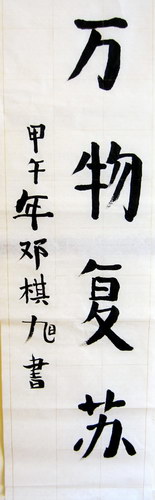 万物复苏
甲午年邓棋旭書